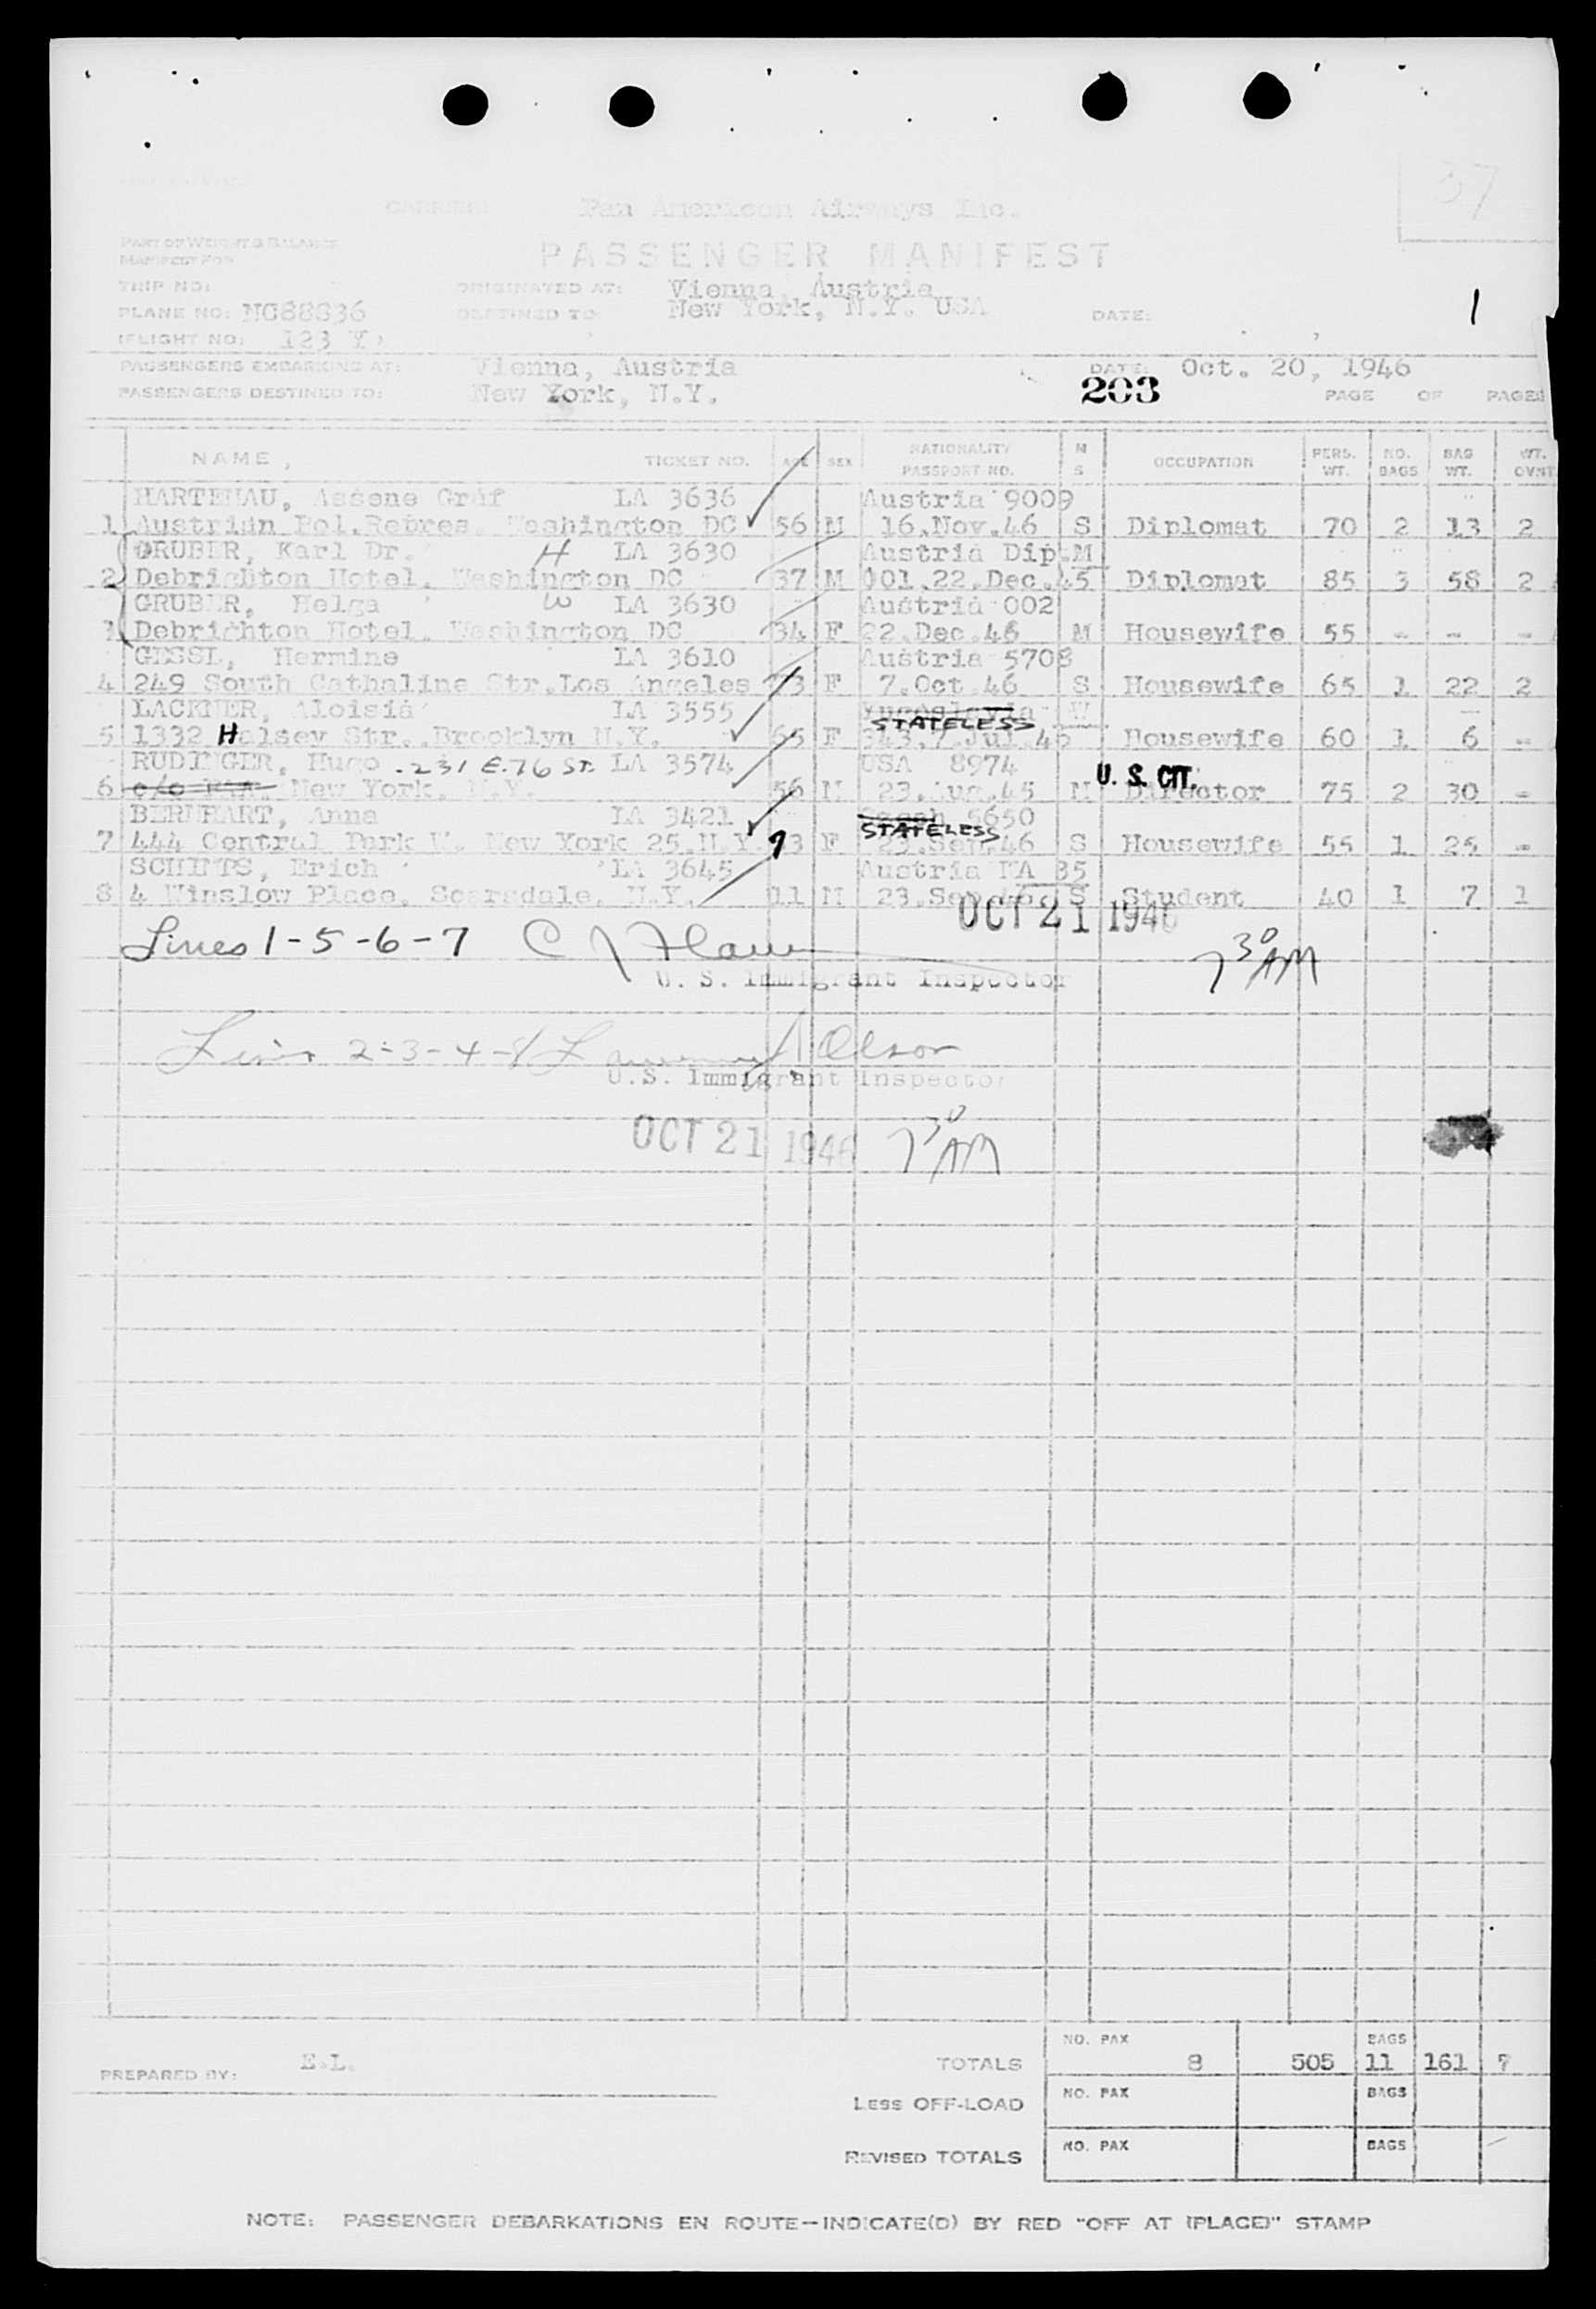 37
CARRIER: Pan American Airways Inc.
PART OF WEIGHT & BALANCE
MANIFEST FOR
PASSENGER MANIFEST
TRIP NO:
ORIGINATED AT: Vienna, Austria
PLANE NO: NC88836
DESTINED TO New York, N.Y. USA
DATE:
1
FLIGHT NO: 123 Y
PASSENGERS EMBARKING AT: Vienna, Austria
DATE: Oct. 20, 1946
PASSENGERS DESTINED TO: New York, N.Y.
203
PAGE OF PAGES
NAME, TICKET NO. AGE SEX NATIONALITY PASSPORT NO. M S OCCUPATION PERS. WT. NO. BAGS BAG WT. WT.
HARTENAU, Assene Graf LA 3636 Austria 9009
1 Austrian Pol.Repres. Washington DC 56 M 16.Nov.46 S Diplomat 70 2 13 2
GRUBER, Karl Dr. H LA 3630 Austria Dip M
2 Debrighton Hotel, Washington DC 37 M 001.22.Dec.45 Diplomat 85 3 58 2
GRUBER, Helga W LA 3630 Austria 002
Debrichton Hotel. Washington DC 34 F 22.Dec.46 M Housewife 55 - - -
GESSL, Hermine LA 3610 Austria 5708
4 249 South Cathaline Str.Los Angeles 73 F 7.Oct.46 S Housewife 65 1 22 2
LACKNER, Aloisia LA 3555 Yugoslavia W
STATELESS
5 1332 Halsey Str..Brooklyn N.Y. 65 F 343.7.Jul.46 Housewife 60 1 6 -
RUDINGER, Hugo .231 E.76 ST. LA 3574 USA 8974
U. S. CIT.
6 c/o New York, N.Y. 56 M 23.Aug.45 M Director 75 2 30 -
BERNHART, Anna LA 3421 5650
STATELESS
7 444 Central Park W. New York 25.N.Y. 73 F 23.Sep.46 S Housewife 55 1 25 -
Erich LA 3645 Austria NA 35
8 4 Winslow Place. Scarsdale, N.Y. 11 M 23.Sep.46. S Student 40 1 7 1
OCT 21 1946
Lines 1-5-6-7
7 30 AM
U. S. Immigrant Inspector
Lines 2-3-4-8 Olson
U.S. Immigrant Inspector
OCT 21 1946 7 30 AM
PREPARED BY: E.L.
TOTALS NO. PAX 8 505 BAGS 11 161 7
LESS OFF-LOAD NO. PAX BAGS
REVISED TOTALS NO. PAX BAGS
NOTE: PASSENGER DEBARKATIONS EN ROUTE—INDICATE(D) BY RED "OFF AT (PLACE)" STAMP